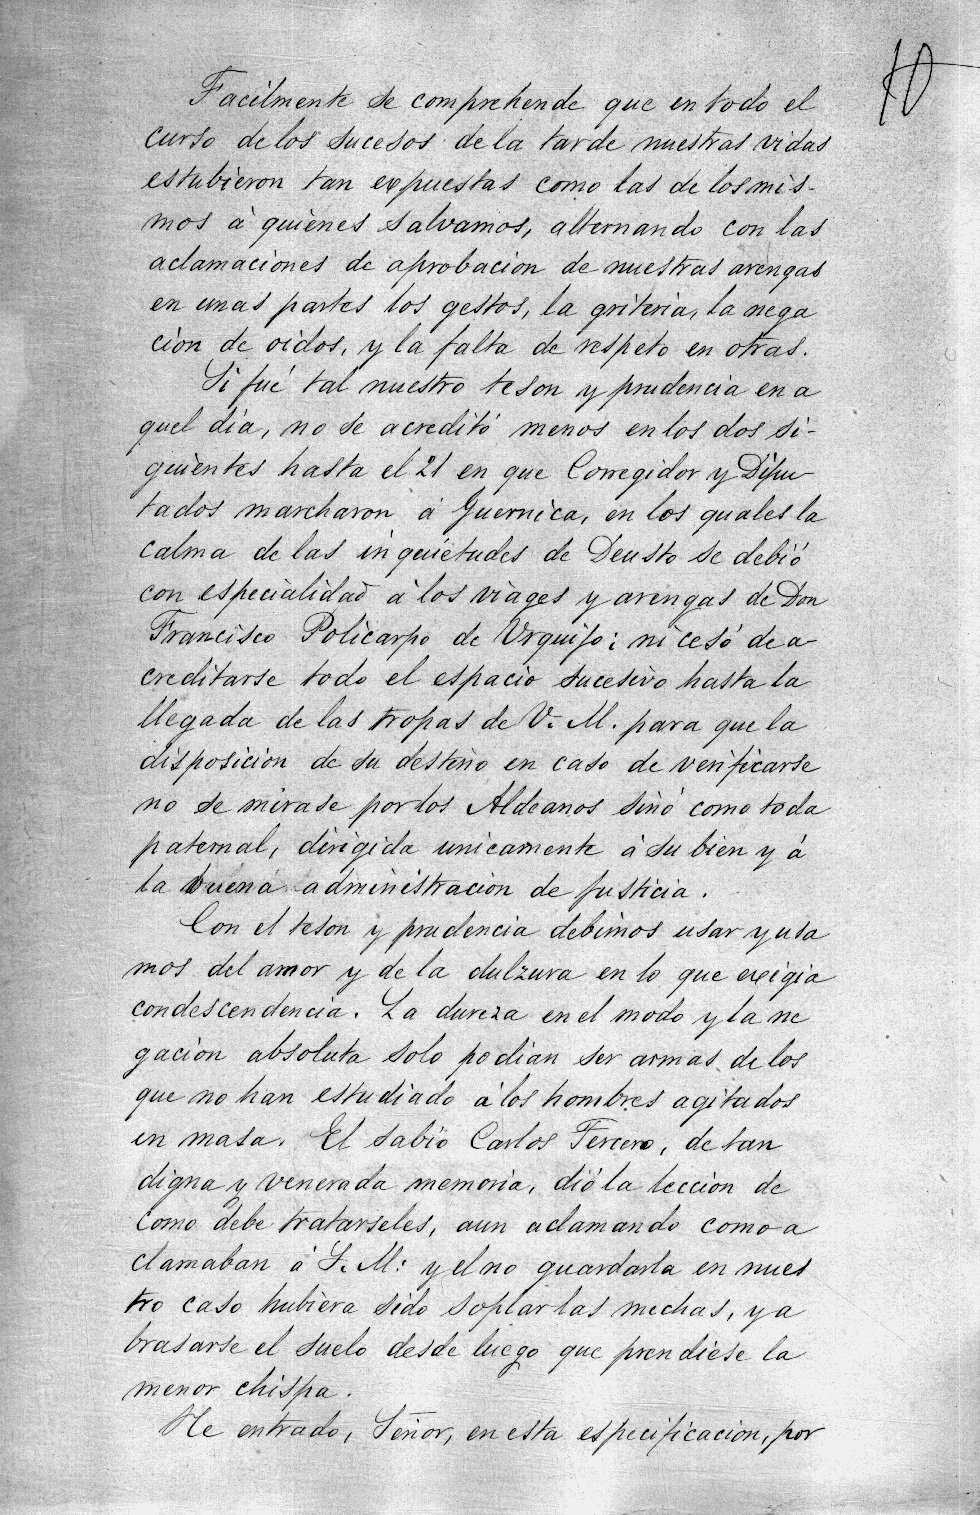 10
Facilmente se comprehende que en todo el
curso de los sucesos de la tarde nuestras vidas
estubieron tan expuestas como las de los mis-
mos á quienes salvamos, alternando con las
aclamaciones de aprobacion de nuestras arengas
en unas partes los gestos, la griteria, la nega
cion de oidos, y la falta de respeto en otras.
Si fué tal nuestro teson y prudencia en a
quel dia, no se acreditó menos en los dos si-
guientes hasta el 21 en que Corregidor y Dipu-
tados marcharon á Guernica, en los quales la
calma de las inquietudes de Deusto se debió
con especialidad á los viages y arengas de Don
Francisco Policarpo de Urquijo; ni cesó de a-
creditarse todo el espacio sucesivo hasta la
llegada de las tropas de V. M. para que la
disposicion de su destino en caso de verificarse
no se mirase por los Aldeanos sinó como toda
paternal, dirigida unicamente á su bien y á
la buena administracion de justicia.
Con el teson y prudencia debimos usar y usa
mos del amor y de la dulzura en lo que exigia
condescendencia. La dureza en el modo y la ne
gacion absoluta solo podian ser armas de los
que no han estudiado á los hombres agitados
en masa. El sabio Carlos Tercero, de tan
digna y venerada memoria, dió la leccion de
como debe tratarseles, aun aclamando como a
clamaban á S. M: y el no guardarla en nues
tro caso hubiera sido soplar las mechas, y a
brasarse el suelo desde luego que prendiese la
menor chispa.
He entrado, Señor, en esta especificacion, por